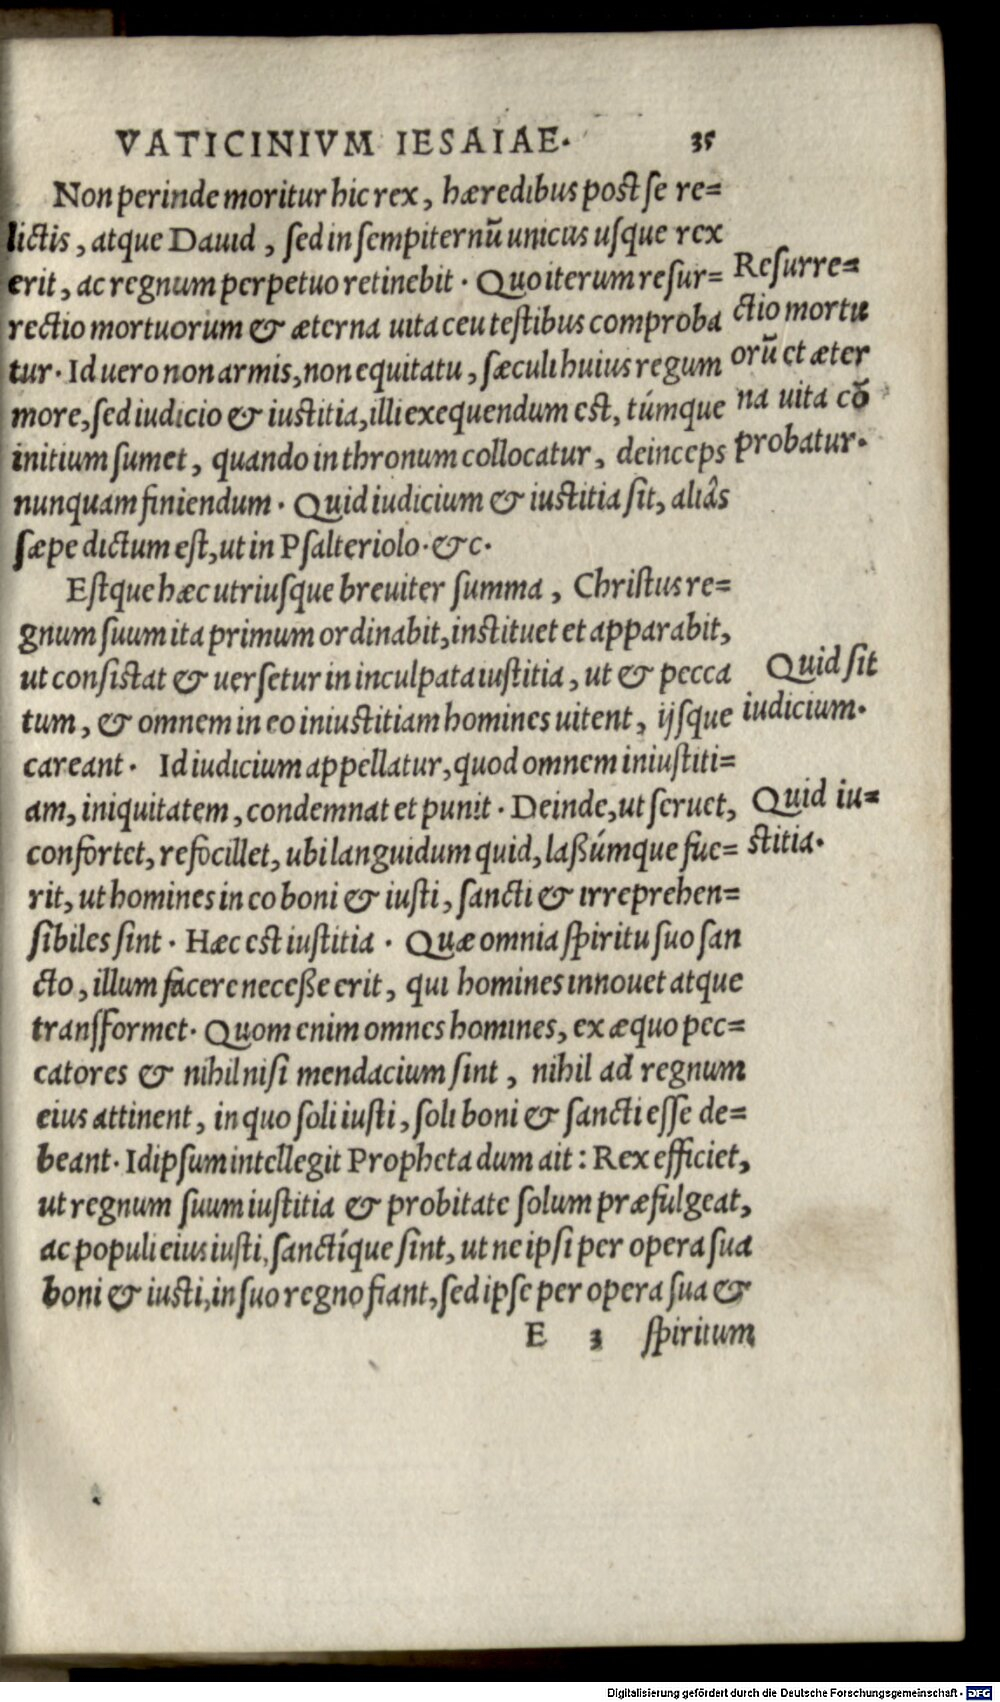 VATICINIVM IESAIAE. 35
Non perinde moritur hic rex, hæredibus post se re=
lictis, atque Dauid, sed in sempiternū unicus usque rex
erit, ac regnum perpetuo retinebit. Quo iterum resur=
rectio mortuorum & æterna uita ceu testibus comproba
tur. Id uero non armis, non equitatu, sæculi huius regum
more, sed iudicio & iustitia, illi exequendum est, túmque
initium sumet, quando in thronum collocatur, deinceps
nunquam finiendum. Quid iudicium & iustitia sit, aliâs
sæpe dictum est, ut in Psalteriolo. &c.
Resurre=
ctio mortu
orū et æter
na uita cō
probatur.
Estque hæc utriusque breuiter summa, Christus re=
gnum suum ita primum ordinabit, instituet et apparabit,
ut consistat & uersetur in inculpata iustitia, ut & pecca
tum, & omnem in eo iniustitiam homines uitent, ijsque
careant. Id iudicium appellatur, quod omnem iniustiti=
am, iniquitatem, condemnat et punit. Deinde, ut seruet,
confortet, refocillet, ubi languidum quid, laßúmque fue=
rit, ut homines in eo boni & iusti, sancti & irreprehen=
sibiles sint. Hæc est iustitia. Quæ omnia spiritu suo san
cto, illum facere neceße erit, qui homines innouet atque
transformet. Quom enim omnes homines, ex æquo pec=
catores & nihil nisi mendacium sint, nihil ad regnum
eius attinent, in quo soli iusti, soli boni & sancti esse de=
beant. Id ipsum intellegit Propheta dum ait: Rex efficiet,
ut regnum suum iustitia & probitate solum præfulgeat,
ac populi eius iusti, sanctíque sint, ut ne ipsi per opera sua
boni & iusti, in suo regno fiant, sed ipse per opera sua &
Quid sit
iudicium.
Quid iu=
stitia.
E 3 spiritum
Digitalisierung gefördert durch die Deutsche Forschungsgemeinschaft - DFG